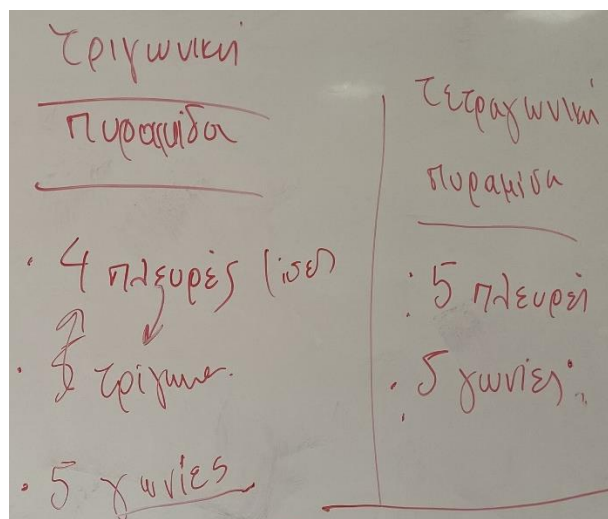 τριγωνική
πυραμίδα
· 4 πλευρές (ίσες)
· τρίγωνα.
· 5 γωνίες
τετραγωνική
πυραμίδα
· 5 πλευρές
· 5 γωνίες